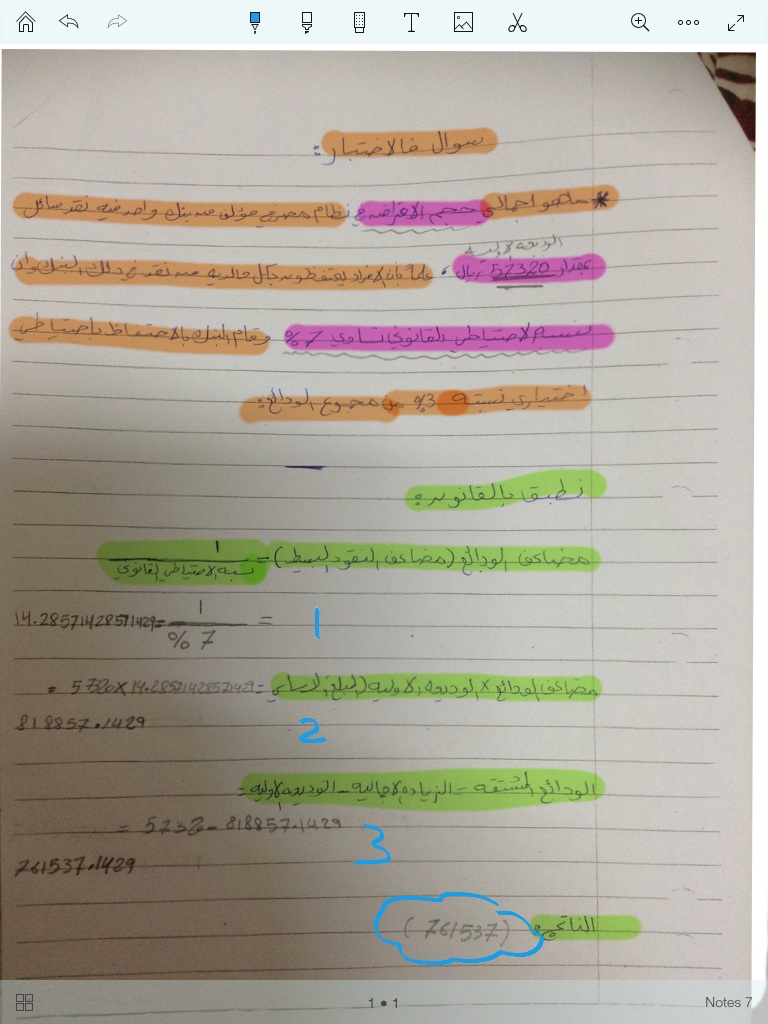 سوال فالاختبار :
* ماهو اجمالي حجم الاقراض في نظام مصرفي مؤلف من بنك واحد فيه نقد سائل
الوديعه الاوليه
بمقدار 57320 ريال ، علماً بان الافراد يحتفظون بكل مالديه من نقد في ذلك البنك وان
نسبه الاحتياطي القانوني تساوي 7 % وقام البنك بالاحتفاظ باحتياطي
اختياري نسبته 3% من مجموع الودائع :
نطبق بالقانون :
مضاعف الودائع (مضاعف النقود البسيط) = 1
نسبه الاحتياطي القانوني
1 = 1 = 14.28571428571429
% 7
مضاعف الودائع × الوديعه الاوليه (المبلغ الاساسي) = 14.28571428571429 × 57320 =
818857.1429
2
الودائع المشتقه = الزياده الاجماليه - الوديعه الاوليه =
818857.1429 - 57320 =
3
761537.1429
الناتج : (761537)
1 • 1
Notes 7